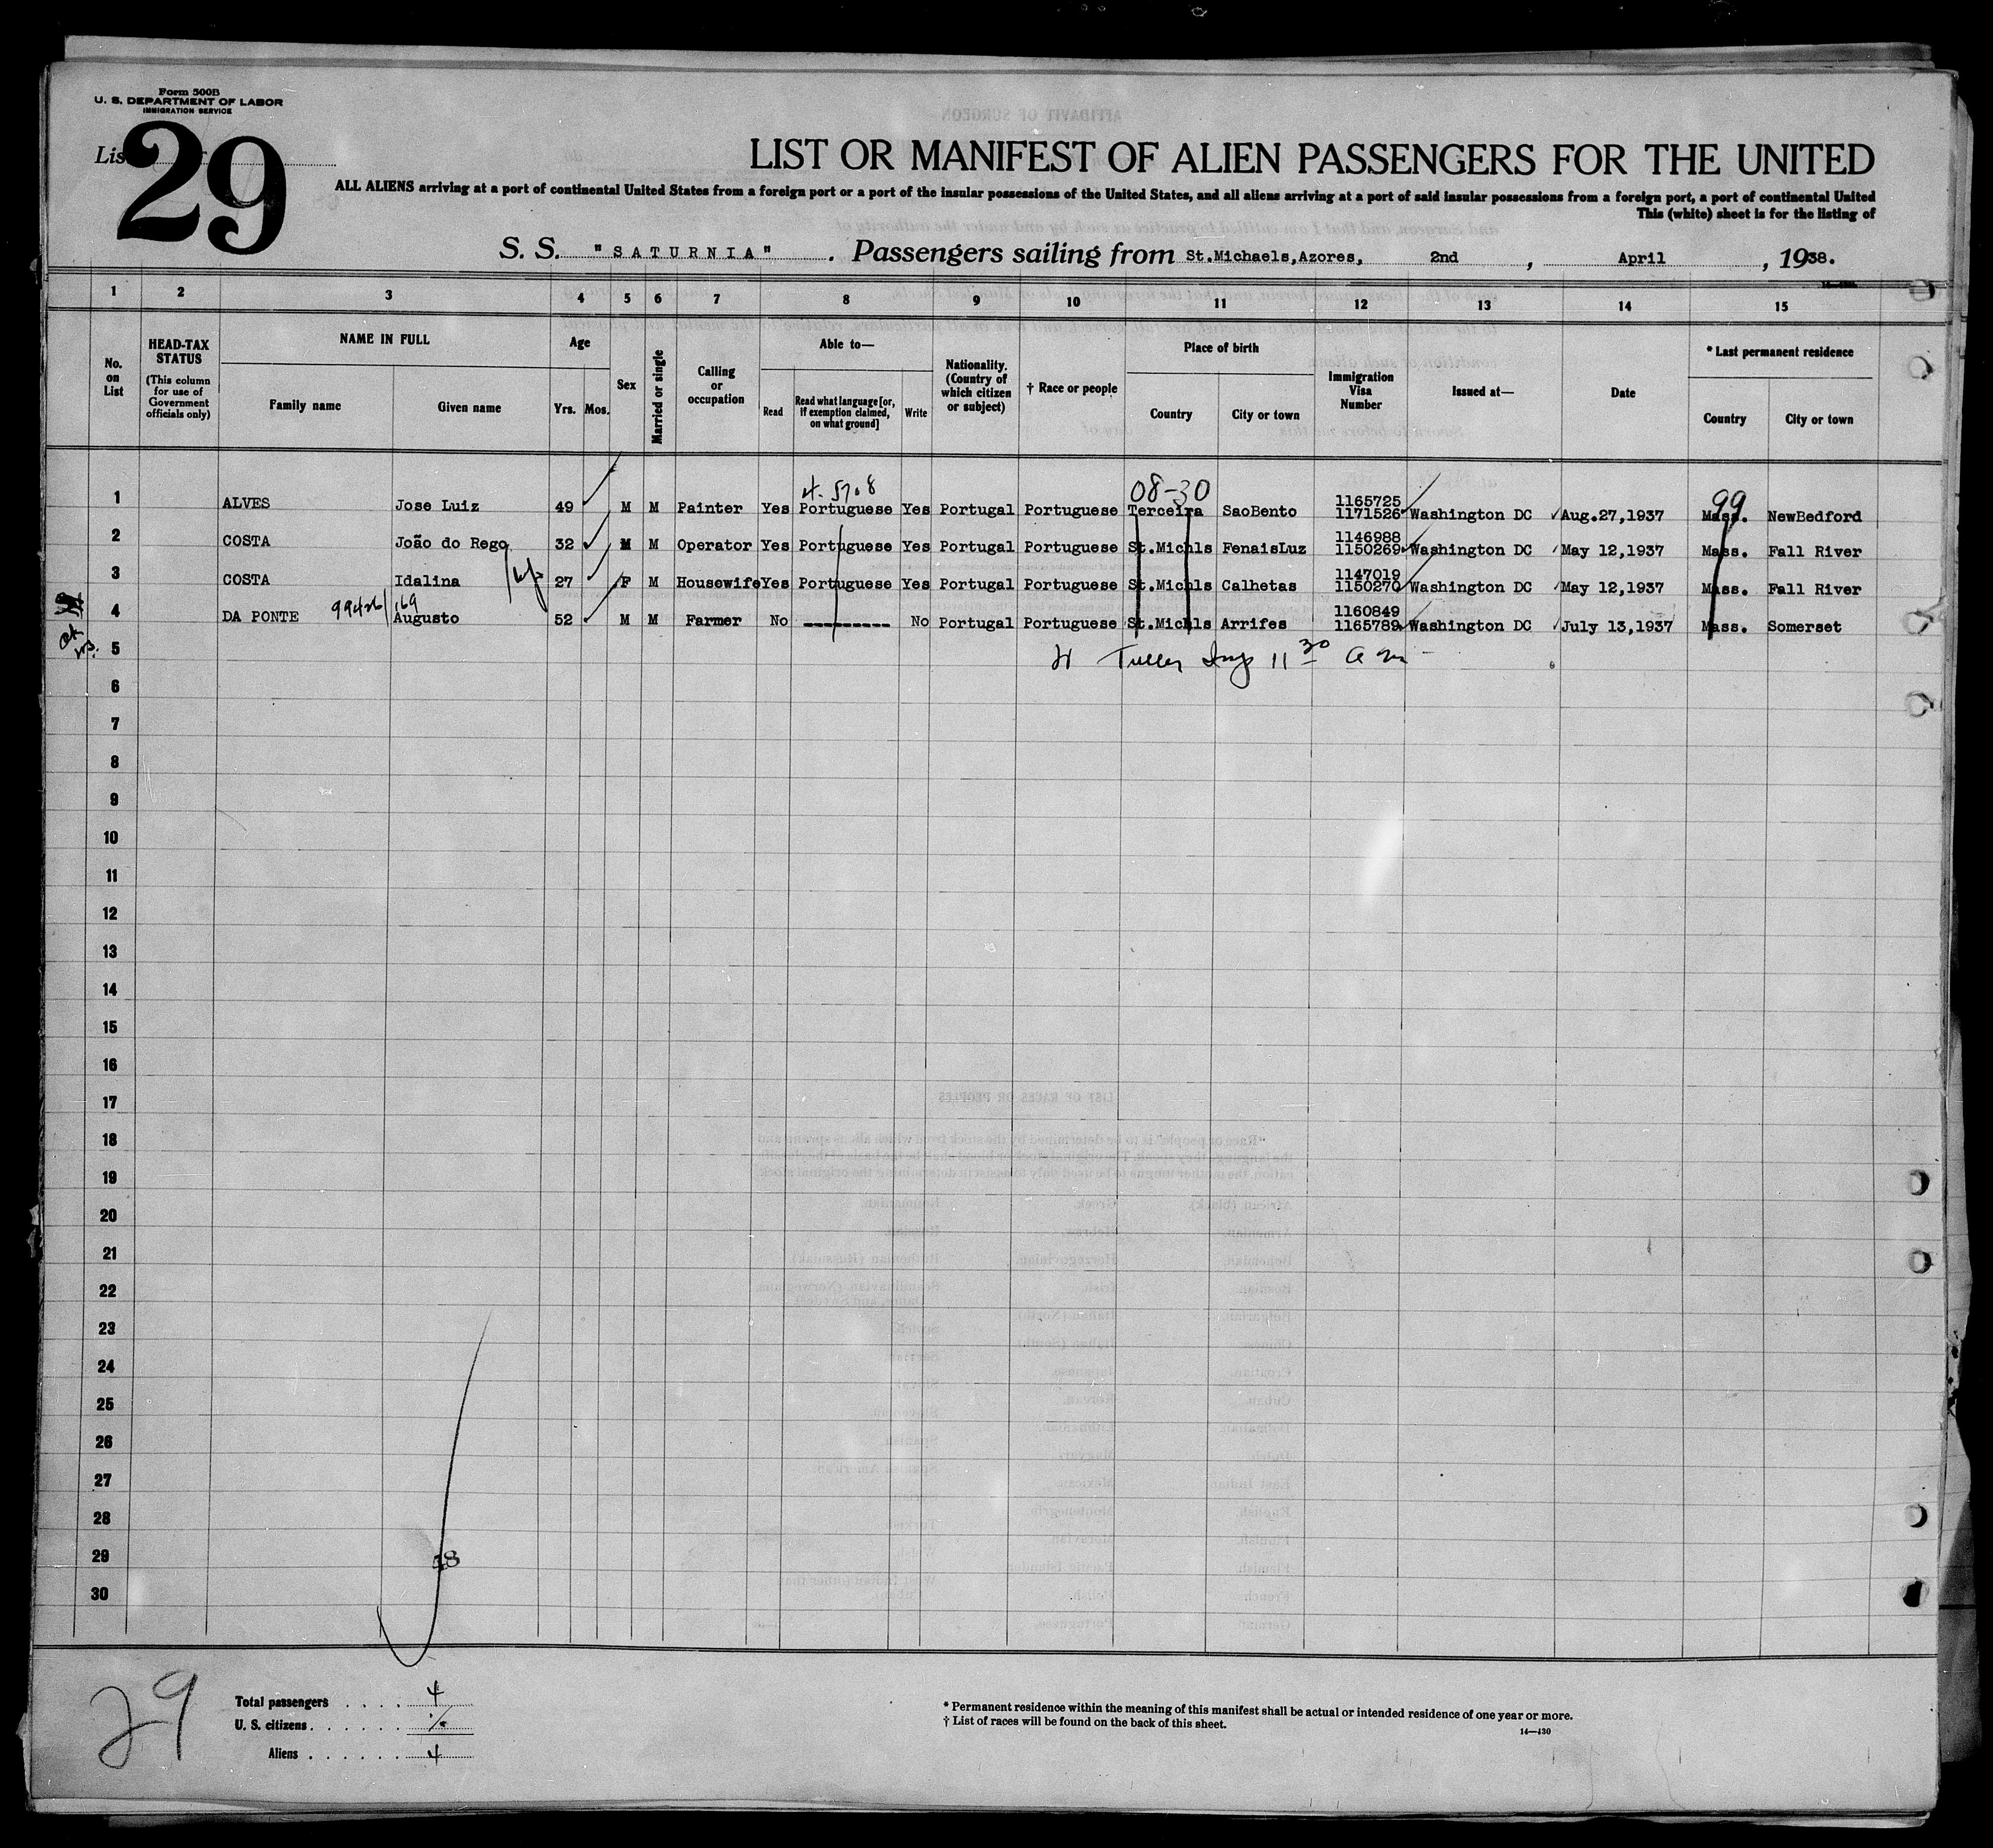 Form 500B
U. S. DEPARTMENT OF LABOR
IMMIGRATION SERVICE
29
LIST OR MANIFEST OF ALIEN PASSENGERS FOR THE UNITED
ALL ALIENS arriving at a port of continental United States from a foreign port or a port of the insular possessions of the United States, and all aliens arriving at a port of said insular possessions from a foreign port, a port of continental United
This (white) sheet is for the listing of
S. S. "SATURNIA". Passengers sailing from St.Michaels,Azores, 2nd , April , 1938.
1 2 3 4 5 6 7 8 9 10 11 12 13 14 15
No. on List
HEAD-TAX STATUS
(This column for use of Government officials only)
NAME IN FULL
Family name
Given name
Age
Yrs. Mos.
Sex
Married or single
Calling or occupation
Able to—
Read
Read what language [or, if exemption claimed, on what ground]
Write
Nationality. (Country of which citizen or subject)
† Race or people
Place of birth
Country
City or town
Immigration Visa Number
Issued at—
Date
* Last permanent residence
Country
City or town
08-30
99
1 ALVES Jose Luiz 49 M M Painter Yes Portuguese Yes Portugal Portuguese Terceira SaoBento 1165725 1171526 Washington DC Aug.27,1937 Mass. NewBedford
2 COSTA João do Rego 32 M M Operator Yes Portuguese Yes Portugal Portuguese St.Michls FenaisLuz 1146988 1150269 Washington DC May 12,1937 Mass. Fall River
3 COSTA Idalina 27 F M Housewife Yes Portuguese Yes Portugal Portuguese St.Michls Calhetas 1147019 1150270 Washington DC May 12,1937 Mass. Fall River
4 DA PONTE 99426/169 Augusto 52 M M Farmer No --------- No Portugal Portuguese St.Michls Arrifes 1160849 1165789 Washington DC July 13,1937 Mass. Somerset
5 11 30 am
6
7
8
9
10
11
12
13
14
15
16
17
18
19
20
21
22
23
24
25
26
27
28
29
30
29
Total passengers . . . . 4
U. S. citizens . . . . . .
Aliens . . . . . . 4
* Permanent residence within the meaning of this manifest shall be actual or intended residence of one year or more.
† List of races will be found on the back of this sheet.
14—430